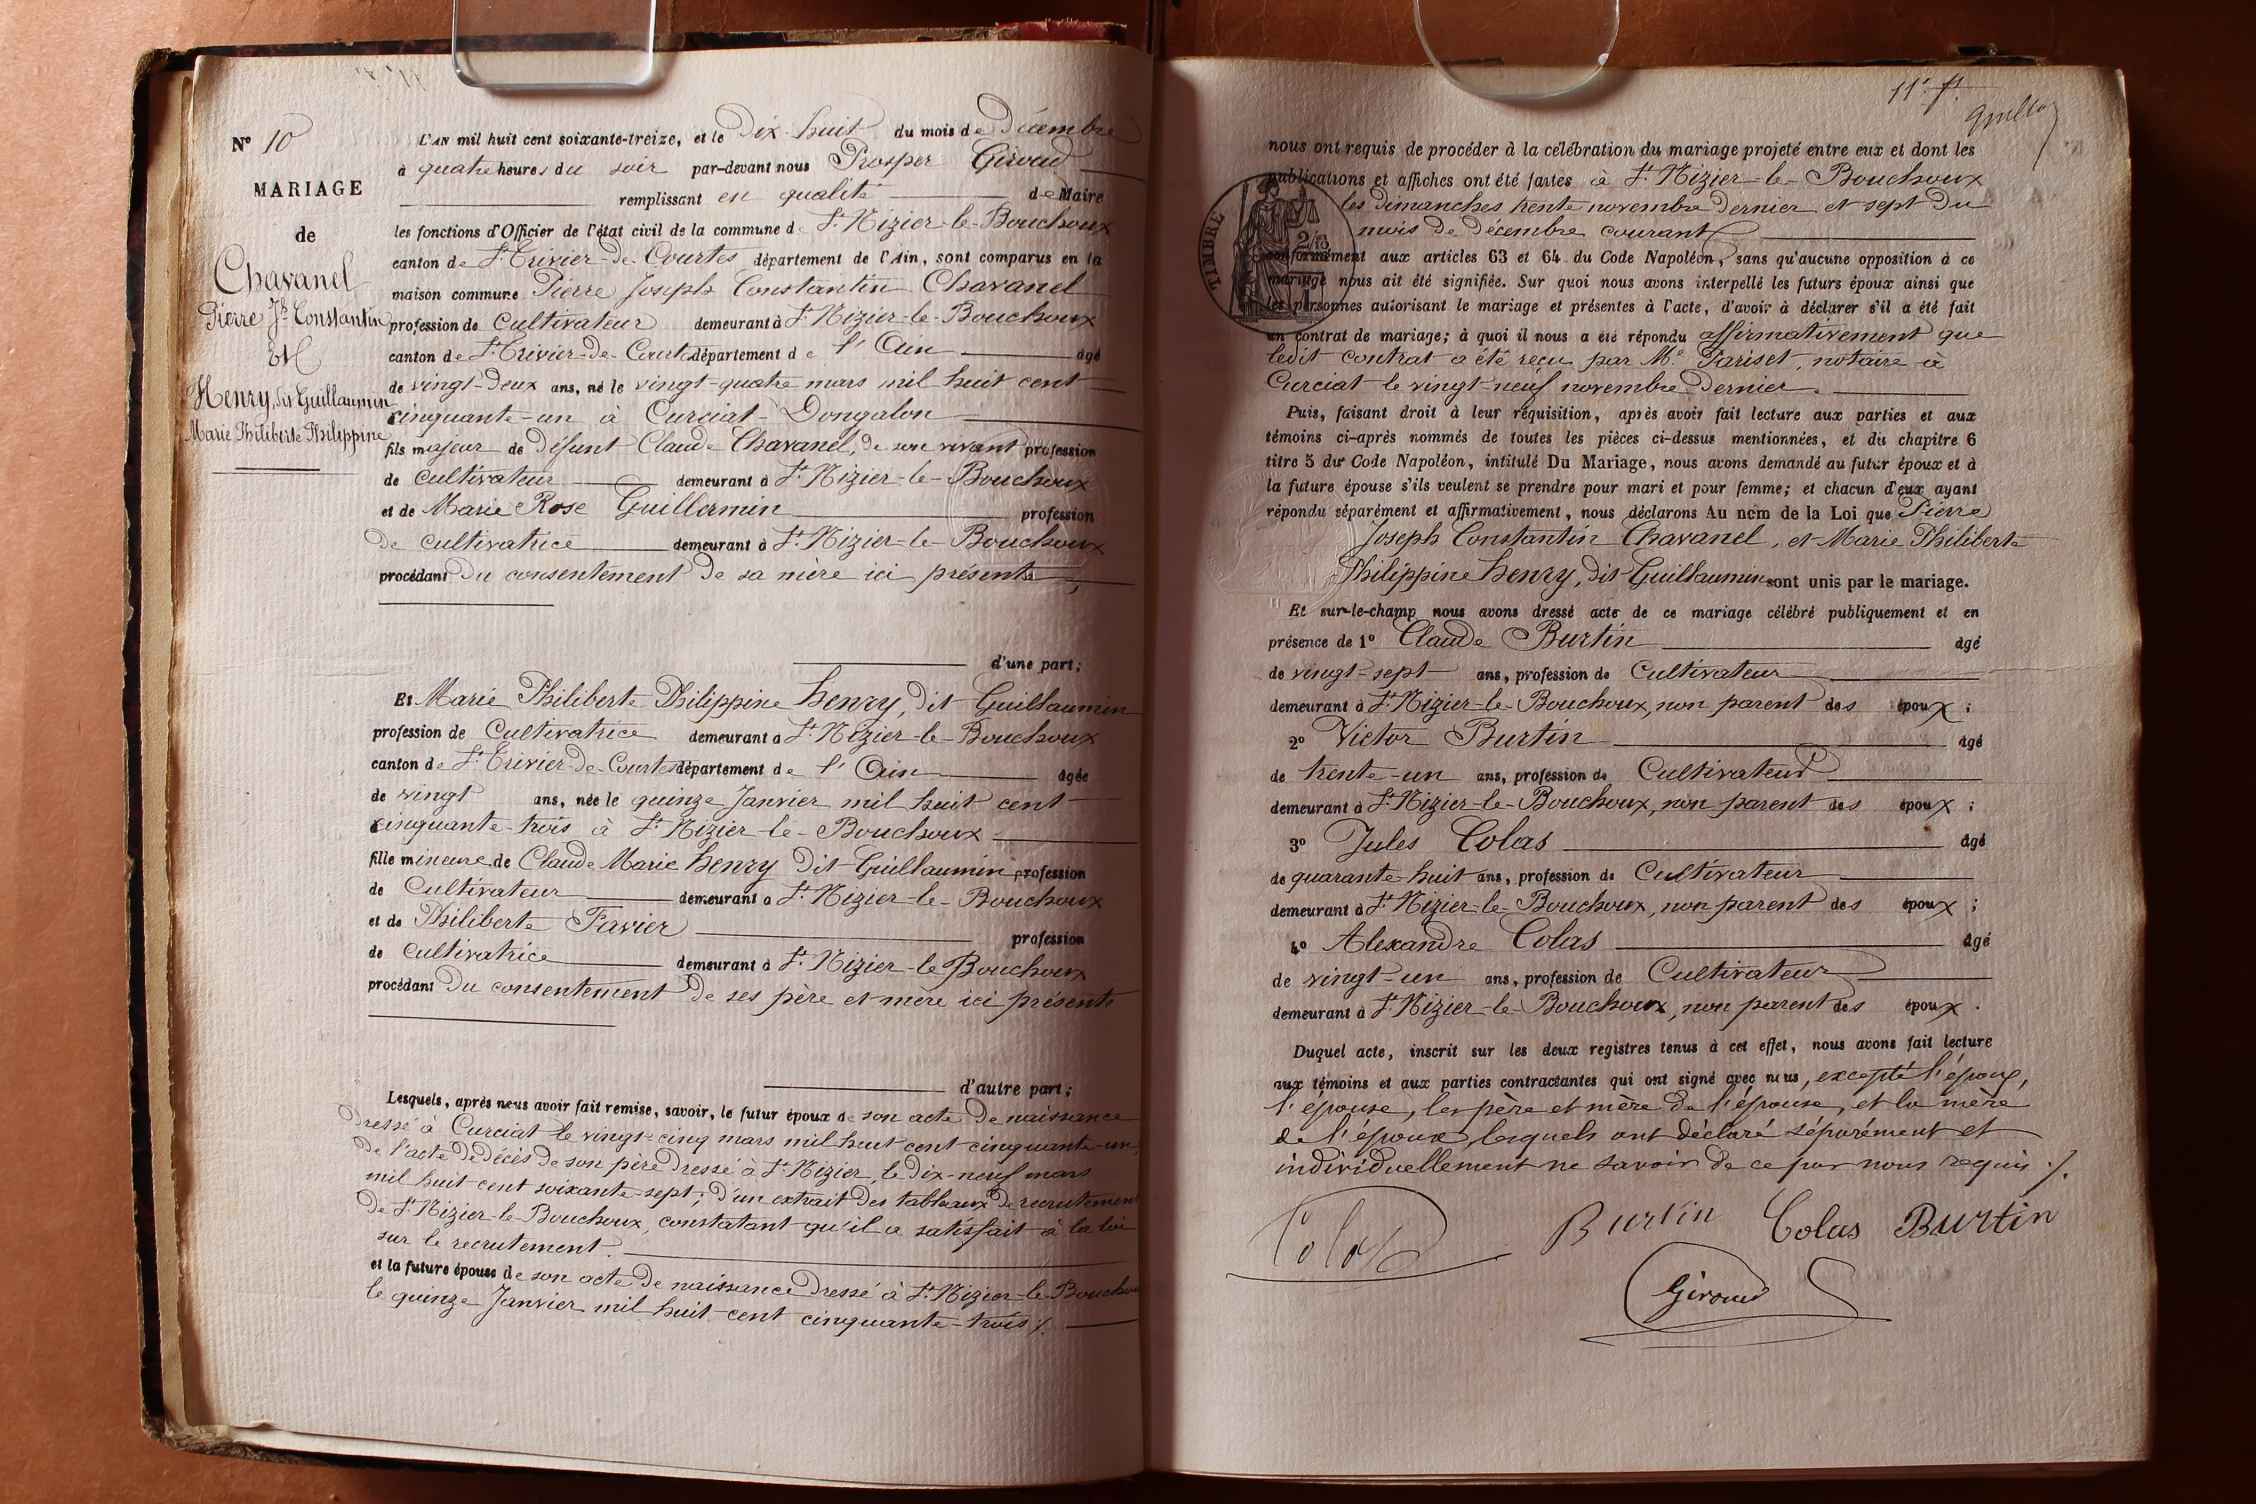 Nº 10
MARIAGE
de
Chavanel
Pierre Jh Constantin
Et
Henry, dit Guillaumin
Marie Philiberte Philippine
L'AN mil huit cent soixante-treize, et le Dix-huit du mois de Décembre
à quatre heures du soir par-devant nous Prosper Giroud
remplissant en qualité de Maire
les fonctions d'Officier de l'état civil de la commune de St Nizier-le-Bouchoux
canton de St Trivier-de-Courtes département de l'Ain, sont comparus en la
maison commune Pierre Joseph Constantin Chavanel
profession de Cultivateur demeurant à St Nizier-le-Bouchoux
canton de St Trivier-de-Courtes département de l'Ain âgé
de vingt-deux ans, né le vingt-quatre mars mil huit cent
cinquante-un à Curciat-Dongalon
fils majeur de défunt Claude Chavanel, de son vivant profession
de cultivateur demeurant à St Nizier-le-Bouchoux
et de Marie Rose Guillermin profession
de cultivatrice demeurant à St Nizier-le-Bouchoux
procédant du consentement de sa mère ici présente,
d'une part;
Et Marie Philiberte Philippine henry, dit Guillaumin
profession de Cultivatrice demeurant à St Nizier-le-Bouchoux
canton de St Trivier-de-Courtes département de l'Ain âgée
de vingt ans, née le quinze Janvier mil huit cent
cinquante-trois à St Nizier-le-Bouchoux
fille mineure de Claude Marie henry dit Guillaumin profession
de Cultivateur demeurant à St Nizier-le-Bouchoux
et de Philiberte Favier profession
de cultivatrice demeurant à St Nizier-le-Bouchoux
procédant du consentement de ses père et mère ici présents
d'autre part;
Lesquels, après nous avoir fait remise, savoir, le futur époux de son acte de naissance
dressé à Curciat le vingt-cinq mars mil huit cent cinquante-un,
de l'acte de décès de son père dressé à St Nizier, le dix-neuf mars
mil huit cent soixante-sept; d'un extrait des tableaux de recrutement
de St Nizier-le-Bouchoux, constatant qu'il a satisfait à la loi
sur le recrutement.
et la future épouse de son acte de naissance dressé à St Nizier-le-Bouchoux
le quinze Janvier mil huit cent cinquante-trois ./.
11e ft
nous ont requis de procéder à la célébration du mariage projeté entre eux et dont les
publications et affiches ont été faites à St Nizier-le-Bouchoux
les dimanches trente novembre dernier et sept du
mois de décembre courant
TIMBRE
conformément aux articles 63 et 64 du Code Napoléon, sans qu'aucune opposition à ce
mariage nous ait été signifiée. Sur quoi nous avons interpellé les futurs époux ainsi que
les personnes autorisant le mariage et présentes à l'acte, d'avoir à déclarer s'il a été fait
un contrat de mariage; à quoi il nous a été répondu affirmativement que
ledit contrat a été reçu par Me Pariset, notaire à
Curciat le vingt-neuf novembre dernier.
Puis, faisant droit à leur réquisition, après avoir fait lecture aux parties et aux
témoins ci-après nommés de toutes les pièces ci-dessus mentionnées, et du chapitre 6
titre 5 du Code Napoléon, intitulé Du Mariage, nous avons demandé au futur époux et à
la future épouse s'ils veulent se prendre pour mari et pour femme; et chacun d'eux ayant
répondu séparément et affirmativement, nous déclarons Au nom de la Loi que Pierre
Joseph Constantin Chavanel, et Marie Philiberte
Philippine henry, dit Guillaumin sont unis par le mariage.
Et sur-le-champ nous avons dressé acte de ce mariage célébré publiquement et en
présence de 1º Claude Burtin âgé
de vingt-sept ans, profession de Cultivateur
demeurant à St Nizier-le-Bouchoux, non parent des époux;
2º Victor Burtin âgé
de trente-un ans, profession de Cultivateur
demeurant à St Nizier-le-Bouchoux, non parent des époux;
3º Jules Colas âgé
de quarante huit ans, profession de Cultivateur
demeurant à St Nizier-le-Bouchoux, non parent des époux;
4º Alexandre Colas âgé
de vingt-un ans, profession de Cultivateur
demeurant à St Nizier-le-Bouchoux, non parent des époux.
Duquel acte, inscrit sur les deux registres tenus à cet effet, nous avons fait lecture
aux témoins et aux parties contractantes qui ont signé avec nous, excepté l'époux,
l'épouse, les père et mère de l'épouse, et la mère
de l'époux, lesquels ont déclaré séparément et
individuellement ne savoir de ce par nous requis ./.
Colas Burtin Colas Burtin
Giroud